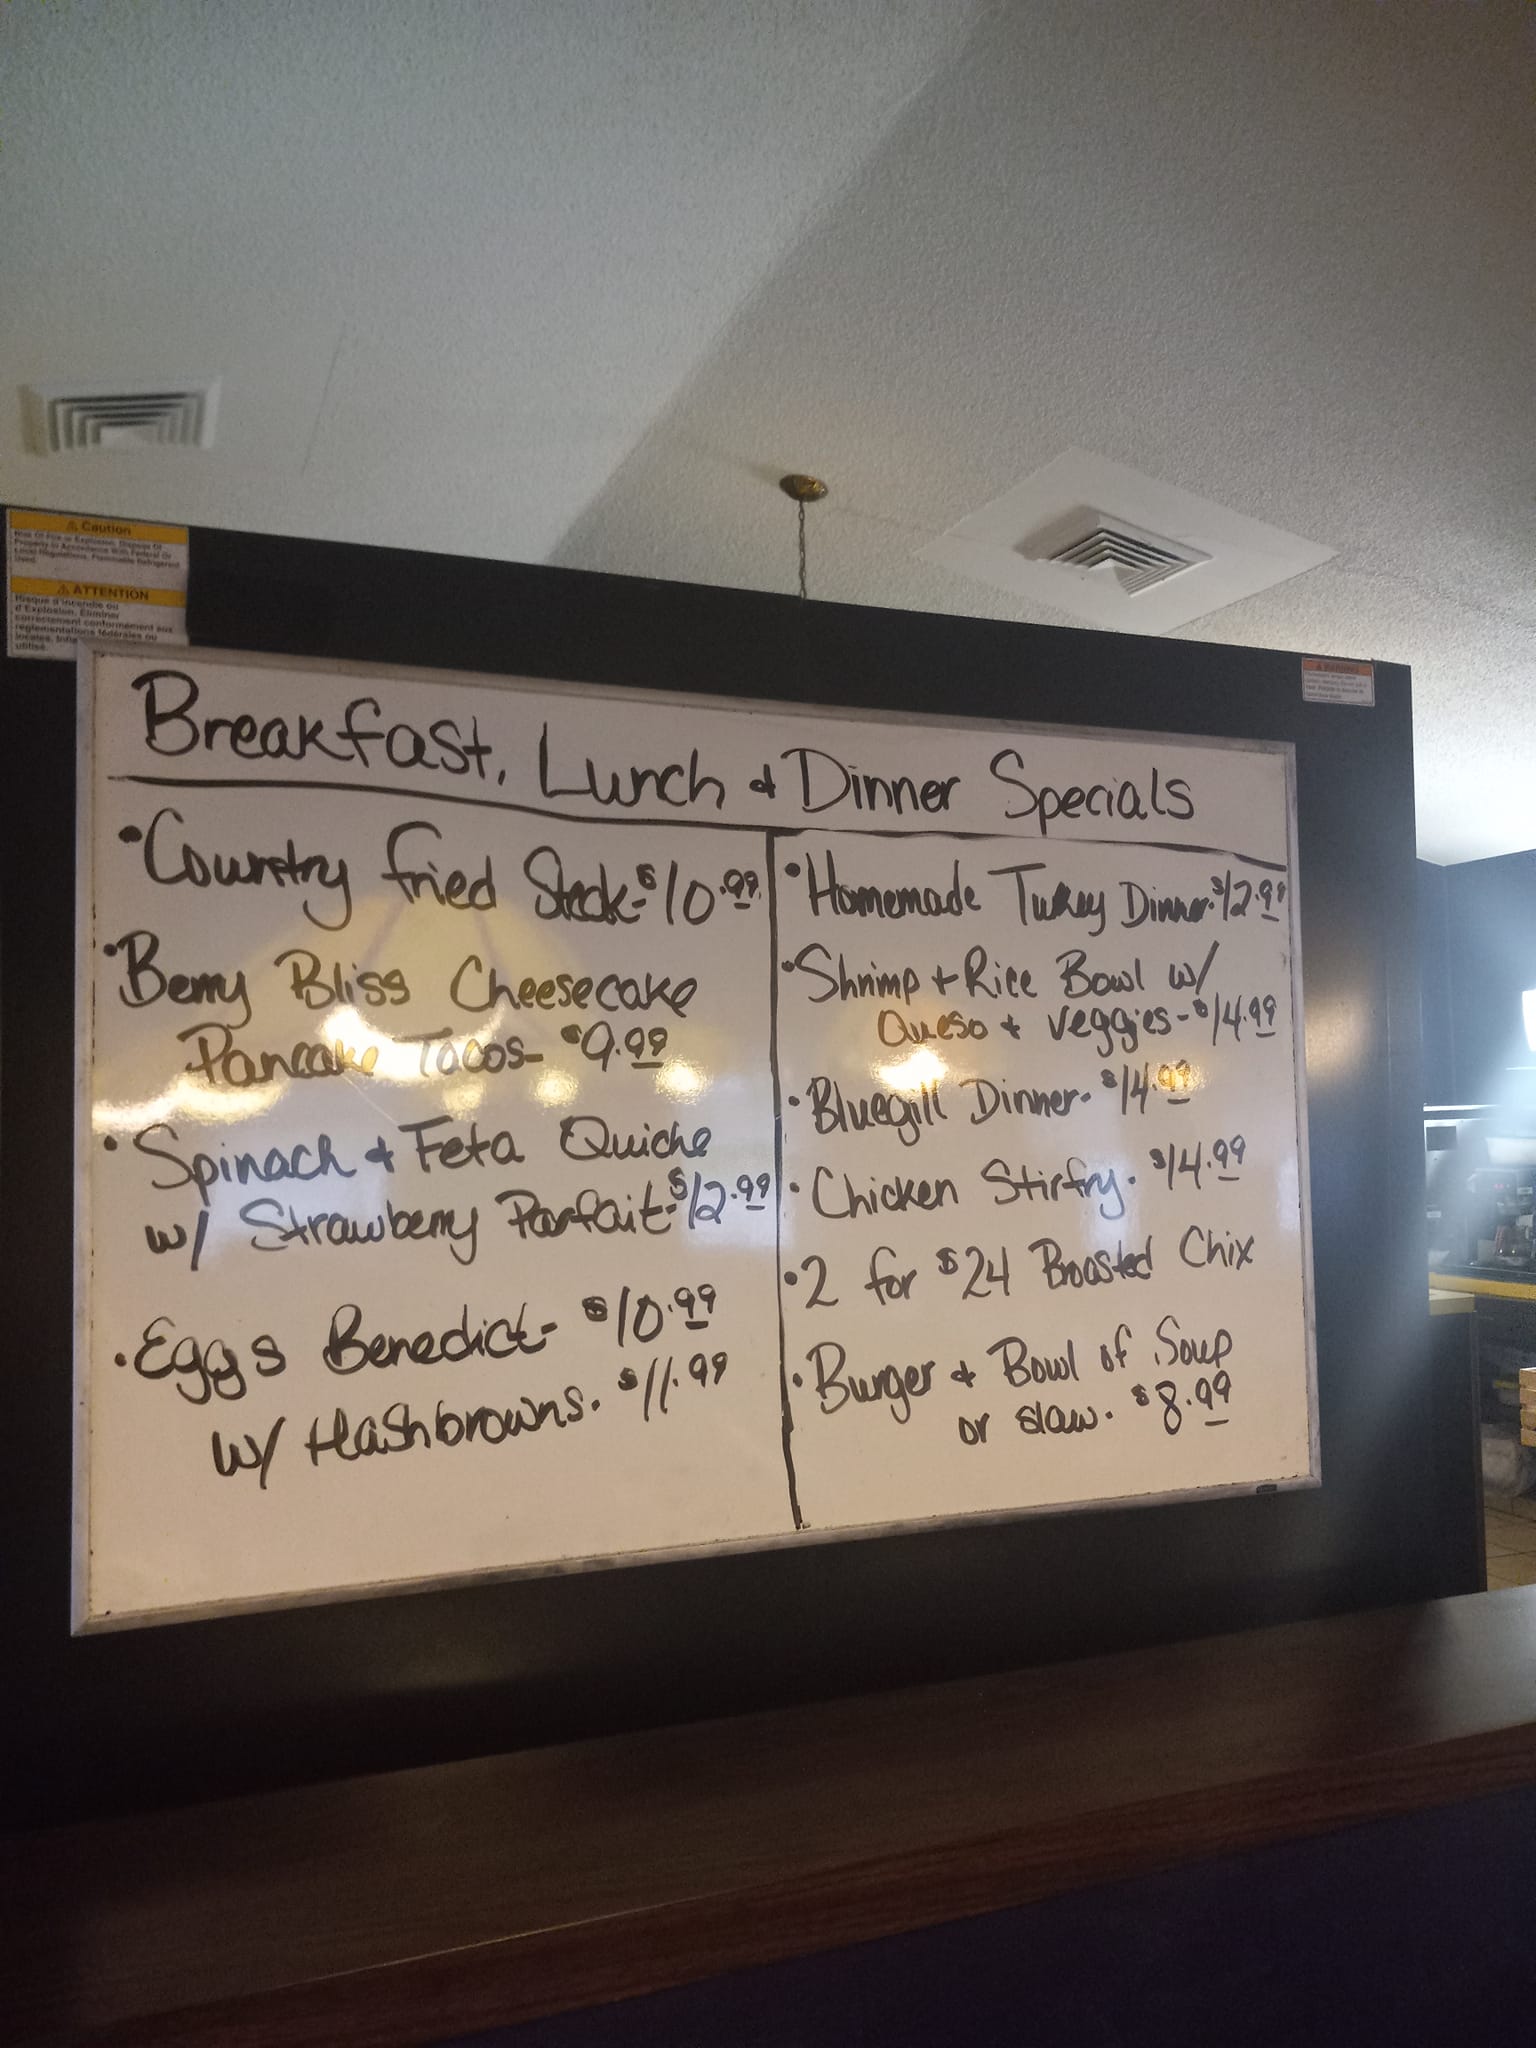 ⚠ Caution
Risk Of Fire or Explosion. Dispose Of
Property In Accordance With Federal Or
Local Regulations. Flammable Refrigerant
Used.
⚠ ATTENTION
Risque d'incendie ou
d'Explosion. Éliminer
correctement conformément aux
réglementations fédérales ou
locales.
utilisé.
Breakfast, Lunch & Dinner Specials
• Country Fried Steak - $10.99
• Berry Bliss Cheesecake
Pancake Tacos - $9.99
• Spinach & Feta Quiche
w/ Strawberry Parfait - $12.99
• Eggs Benedict - $10.99
w/ Hashbrowns. $11.99
• Homemade Turkey Dinner. $12.99
• Shrimp + Rice Bowl w/
Queso + veggies - $14.99
• Bluegill Dinner - $14.99
• Chicken Stirfry. $14.99
• 2 for $24 Broasted Chix
• Burger & Bowl of Soup
or slaw. $8.99